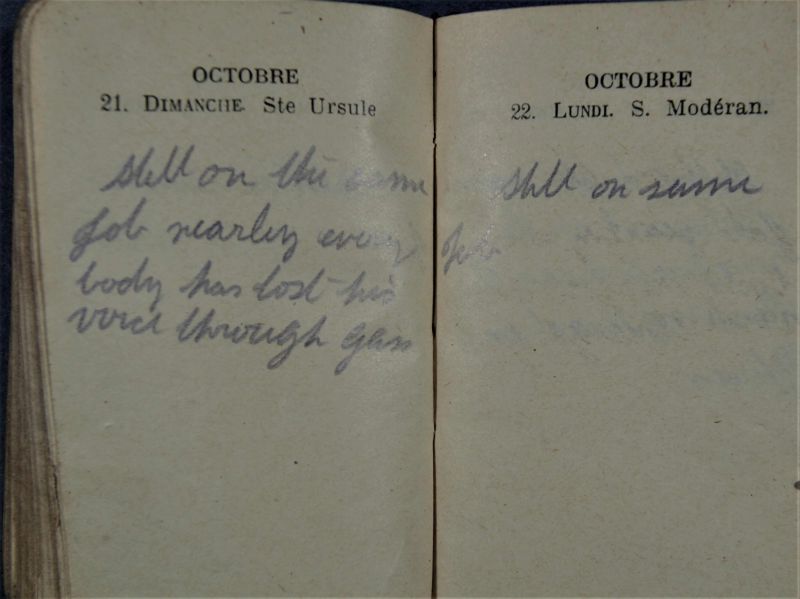 OCTOBRE
21. DIMANCHE. Ste Ursule
still on the same
job nearley every
body has lost his
voice through gas
OCTOBRE
22. LUNDI. S. Modéran.
still on same
job